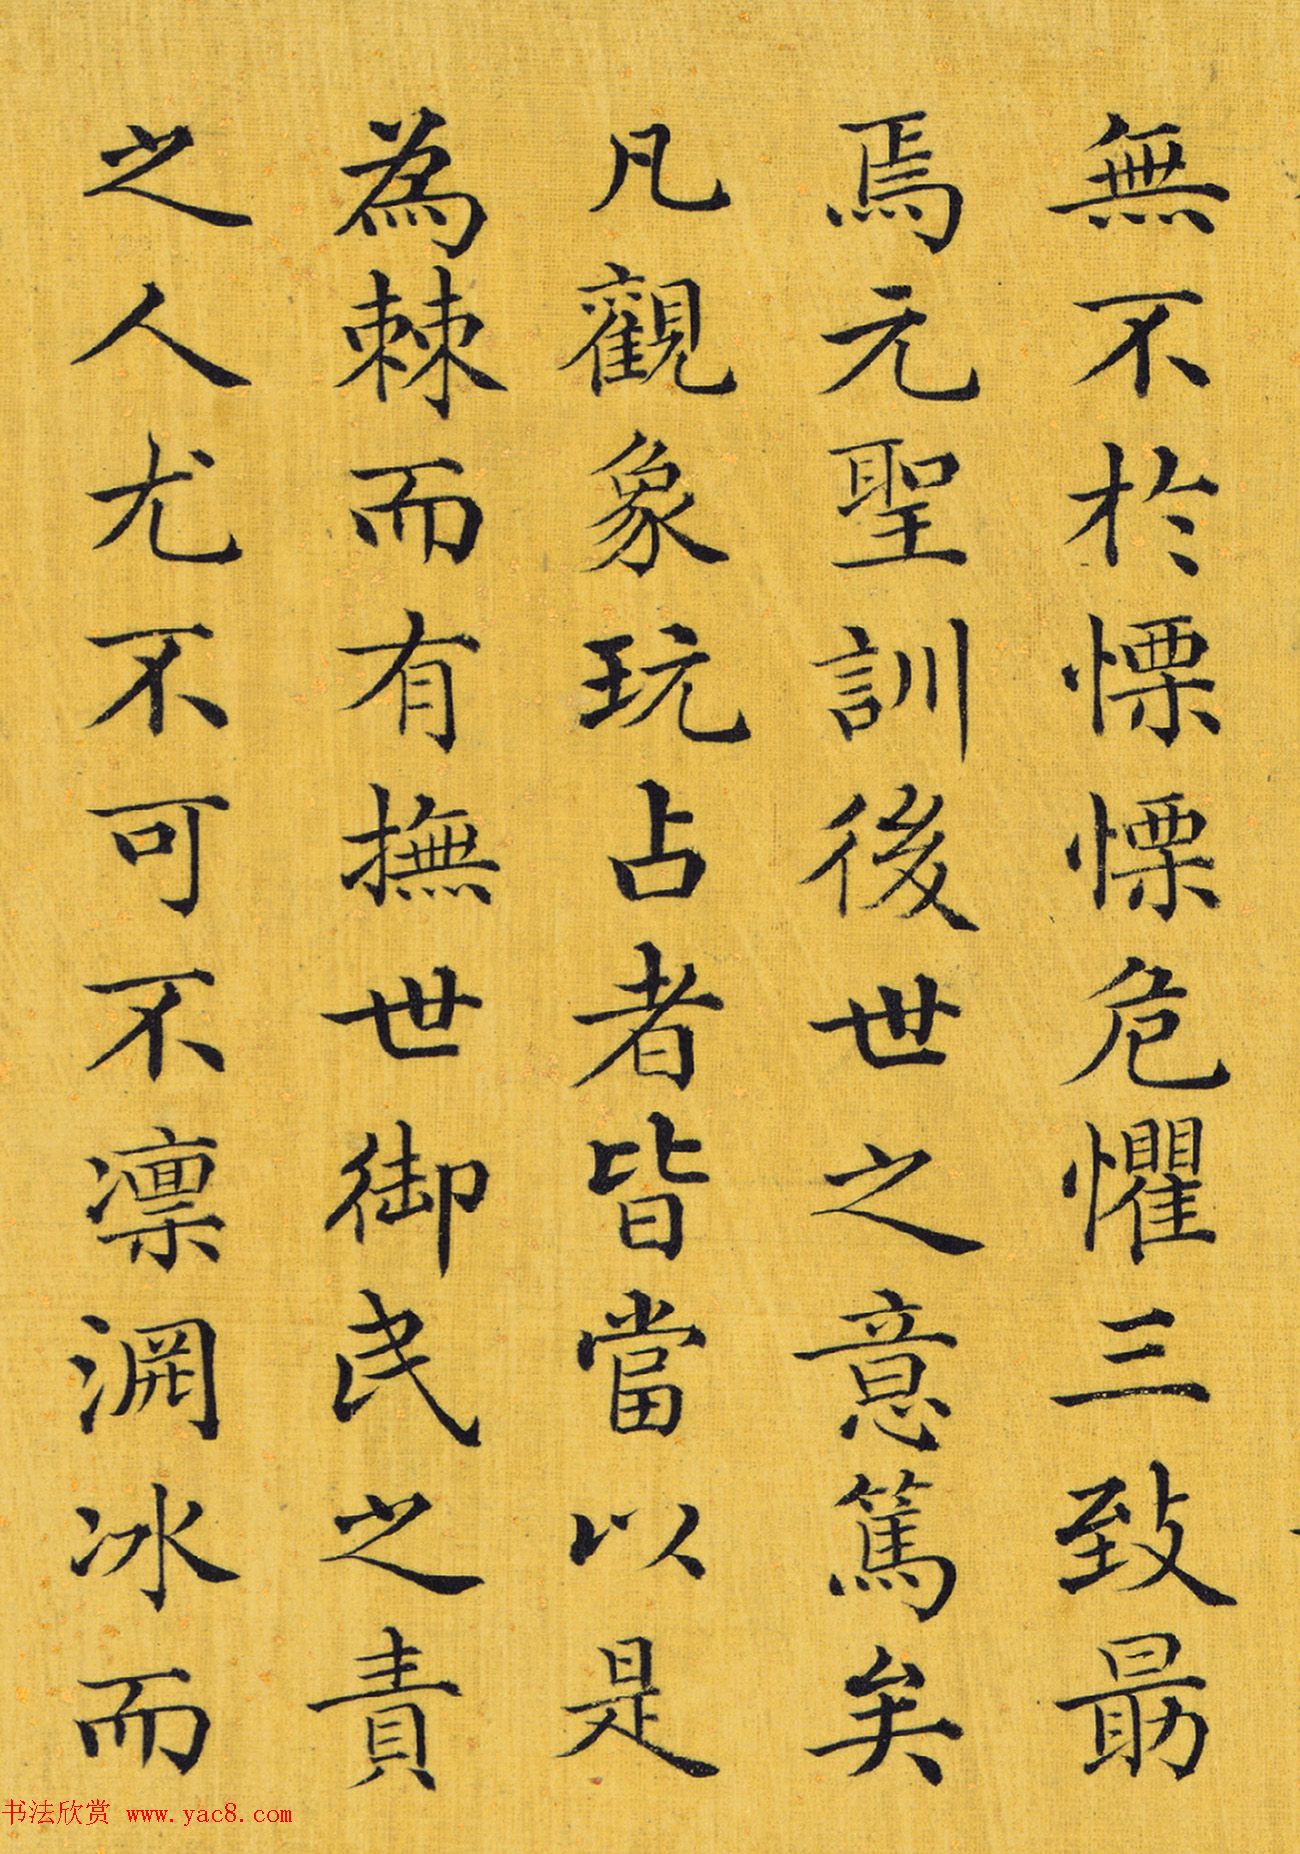 無不於慄慄危懼三致勗
焉元聖訓後世之意篤矣
凡觀象玩占者皆當以是
為棘而有撫世御民之責
之人尤不可不凛淵冰而
书法欣赏 www.yac8.com